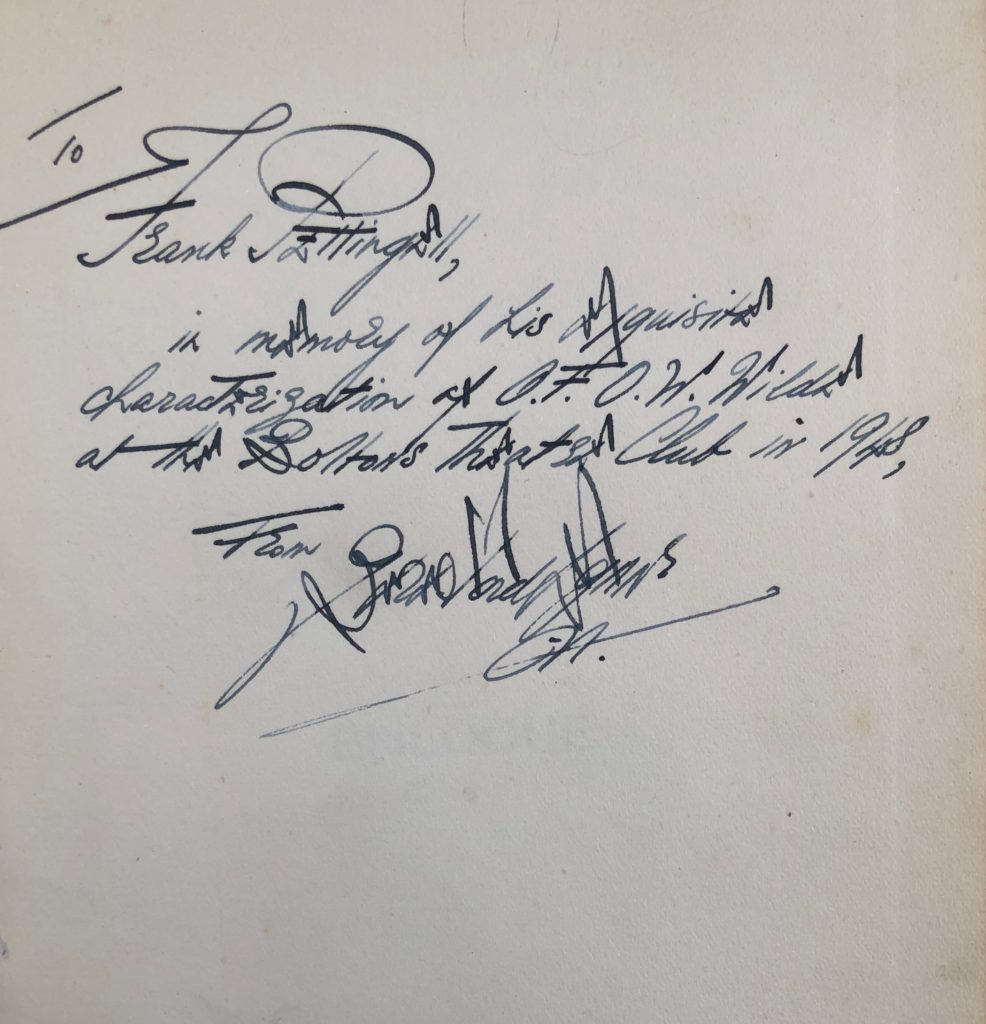 To
Frank Pettingell,
in memory of his exquisite
characterization of O.F.O.W. Wilde
at the Boltons Theatre Club in 1948,
From